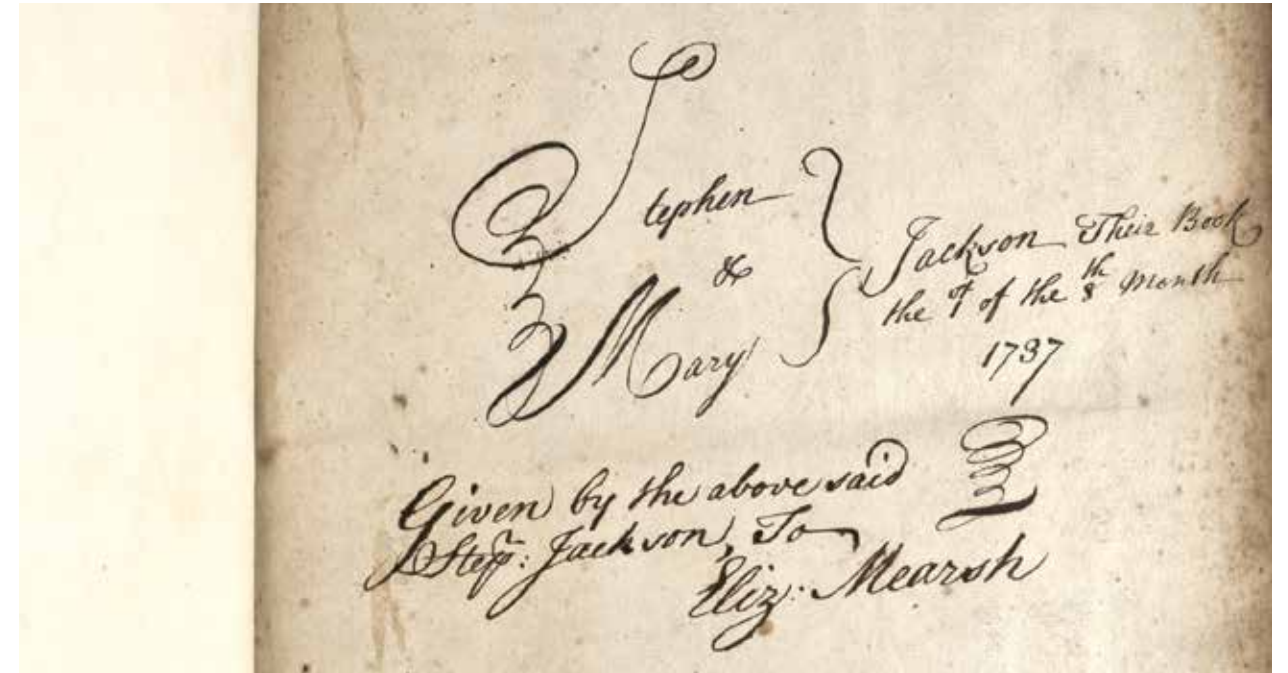 Stephen
&
Mary
Jackson Their Book
the 7 of the 8th Month
1737
Given by the above said
Step: Jackson, To
Eliz: Mearsh